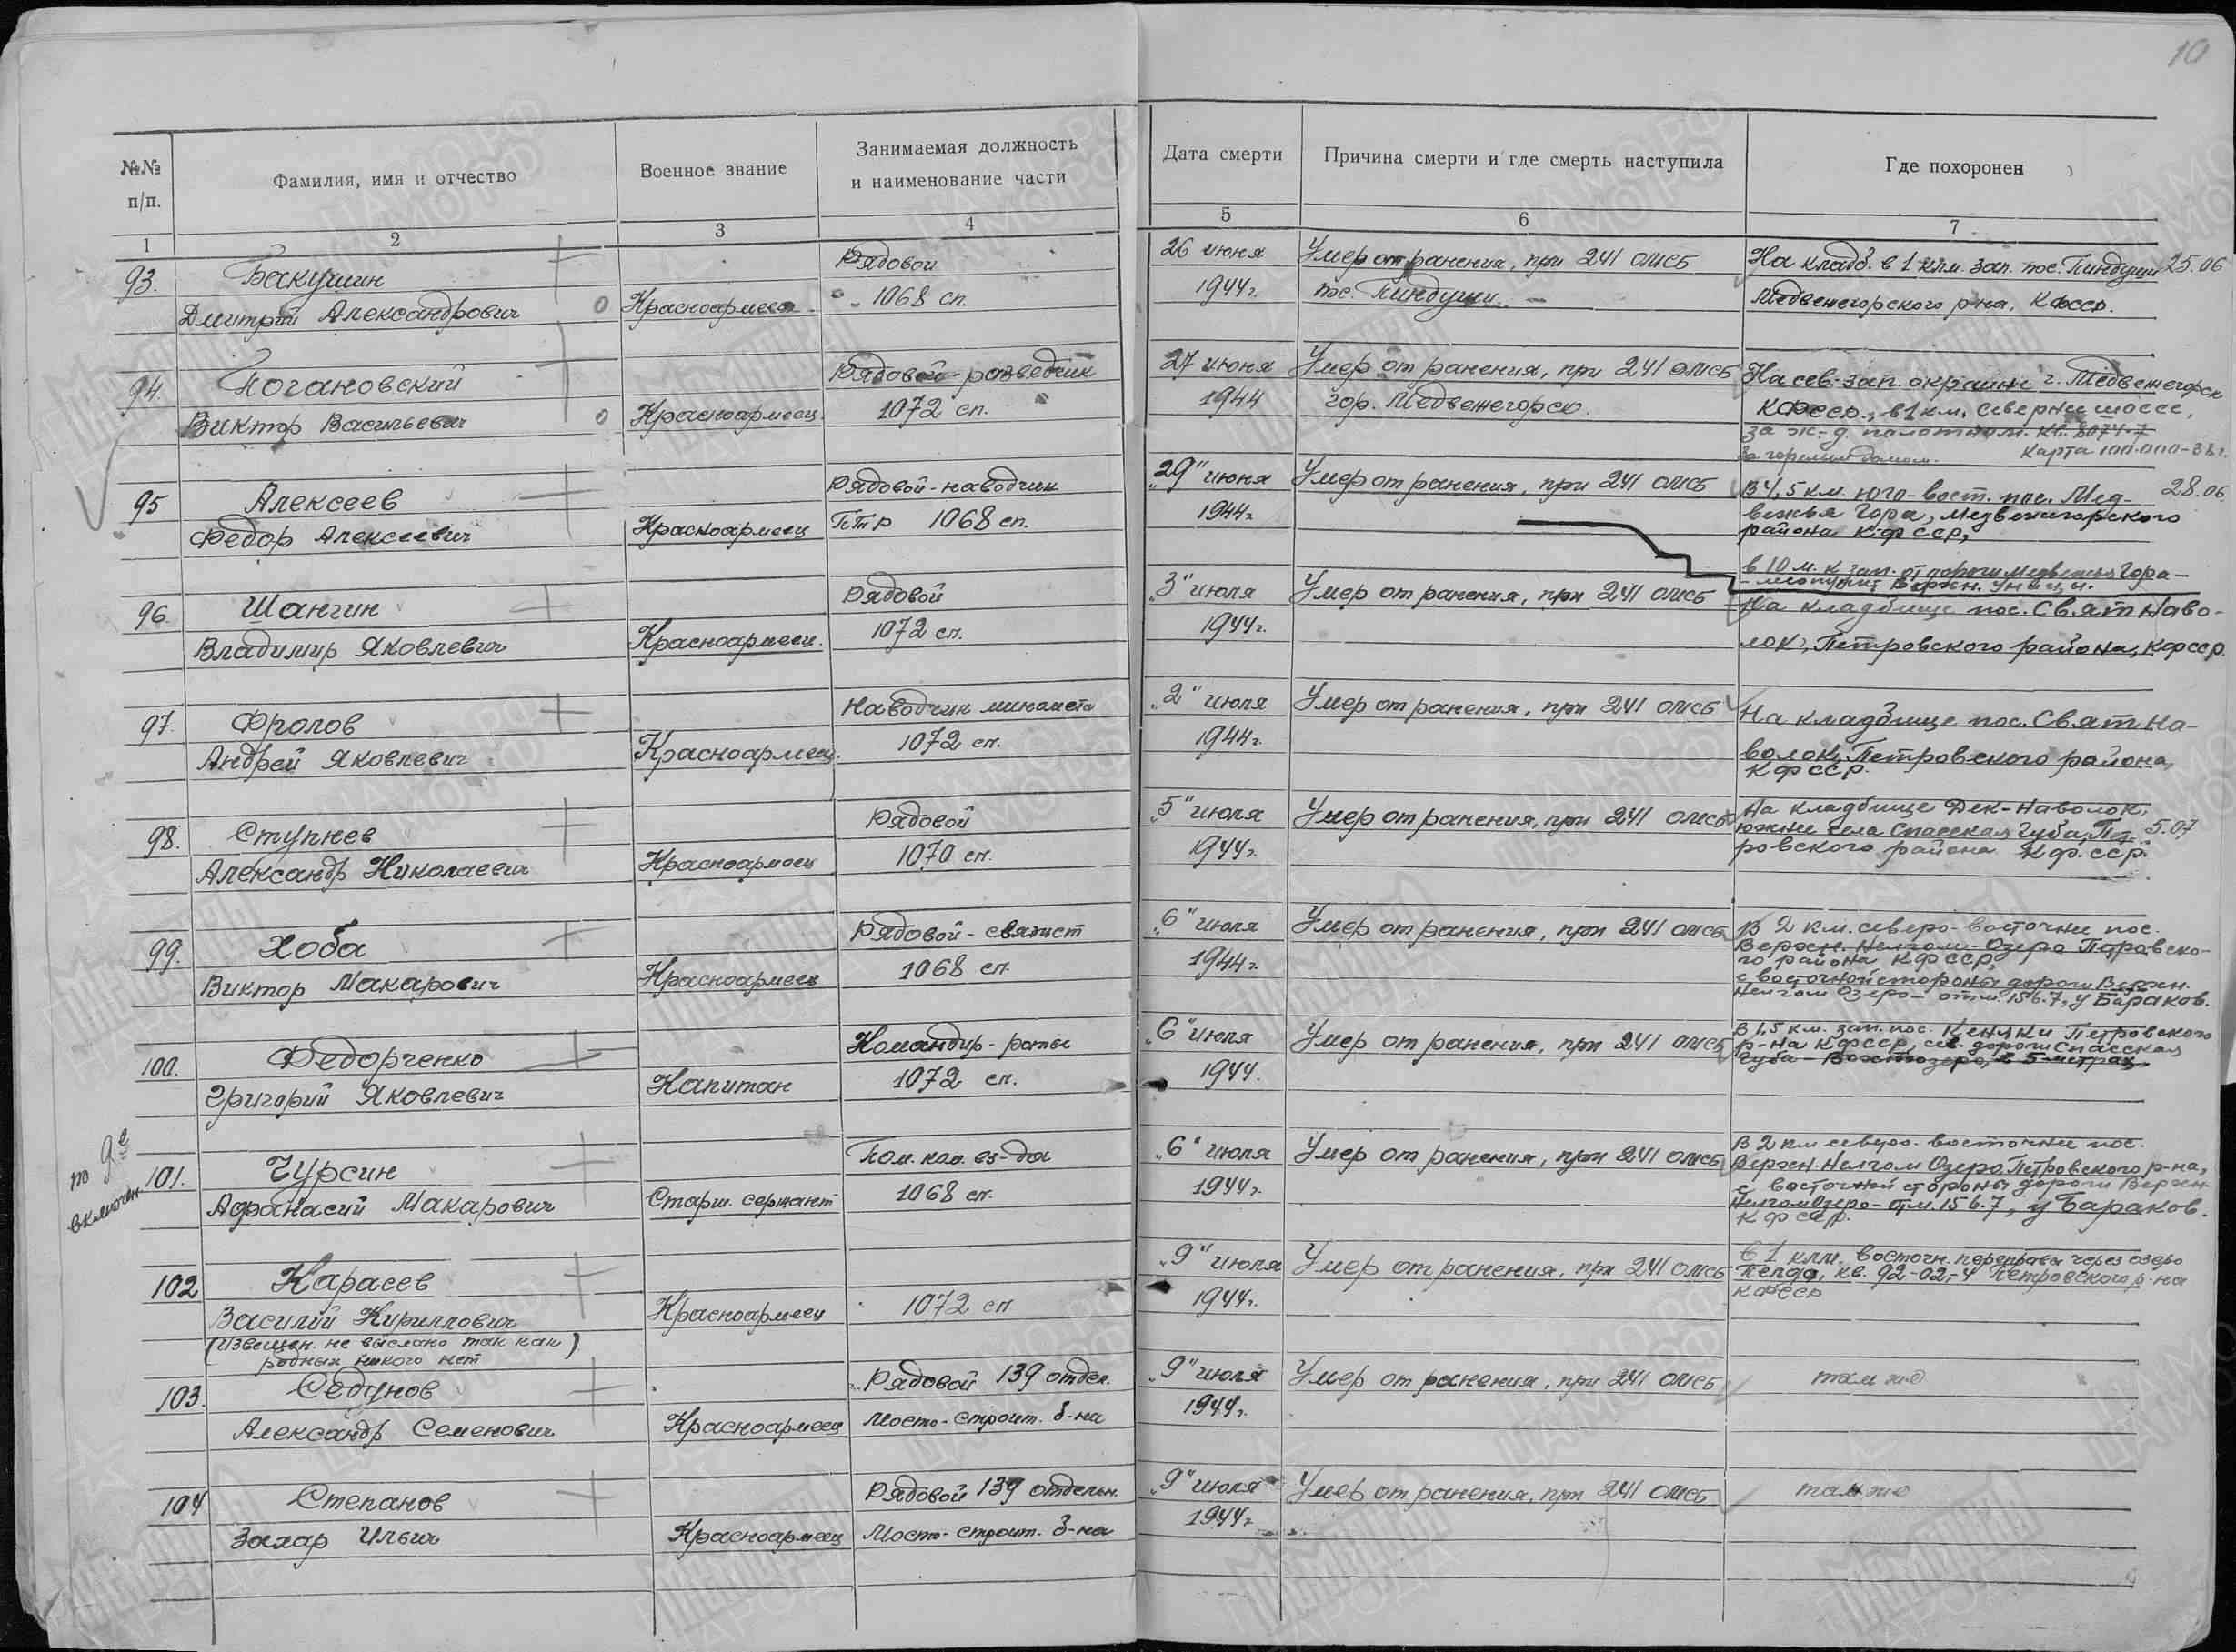 10
№№ п/п.
Фамилия, имя и отчество
Военное звание
Занимаемая должность и наименование части
Дата смерти
Причина смерти и где смерть наступила
Где похоронен
1 2 3 4 5 6 7
93. Бакушин
Дмитрий Александрович
Красноармеец
Рядовой
1068 сп.
26 июня
1944г.
Умер от ранения, при 241 омсб
пос. Пиндуши.
На кладб. в 1 клм. зап. пос. Пиндуши 25.06
Медвежегорского р-на, Кфсср.
94. Погановский
Виктор Васильевич
Красноармеец
Рядовой-разведчик
1072 сп.
27 июня
1944
Умер от ранения, при 241 омсб
гор. Медвежегорск.
На сев.-зап. окраине г. Медвежегорск
Кфсср., в 1 км. севернее шоссе,
за ж-д. полотном. Кв. 8074-7
За горелым домом. Карта 100.000-38г.
95 Алексеев
Федор Алексеевич
Красноармеец
Рядовой-наводчик
ПТР 1068 сп.
„29" июня
1944г.
Умер от ранения, при 241 омсб
В 4,5 км. юго-вост. пос. Мед- 28.06
вежья Гора, Медвежегорского
района Кфсср,
в 10 м. к зап. от дороги Медвежья Гора-
96. Шангин
Владимир Яковлевич
Красноармеец.
Рядовой
1072 сп.
„3" июля
1944г.
Умер от ранения, при 241 омсб
На кладбище пос. Свят Наво-
лок, Петровского района, Кфсср.
97. Фролов
Андрей Яковлевич
Красноармеец.
Наводчик миномета
1072 сп.
„2" июля
1944г.
Умер от ранения, при 241 омсб
На кладбище пос. Свят На-
волок, Петровского района,
Кфсср.
98. Ступнев
Александр Николаевич
Красноармеец
Рядовой
1070 сп.
„5" июля
1944г.
Умер от ранения, при 241 омсб
На кладбище Дек-Наволок,
южнее села Спасская Губа, Пет- 5.07
ровского района Кф.сср.
99. Хоба
Виктор Макарович
Красноармеец
Рядовой-связист
1068 сп.
„6" июля
1944г.
Умер от ранения, при 241 омсб
В 2 км. северо-восточнее пос.
Верхн. Нелгом-Озеро Петровско-
го района Кфсср,
с восточной стороны дороги Верхн.
Нелгом Озеро- отм. 156.7, у бараков.
100. Федорченко
Григорий Яковлевич
Капитан
Командир-роты
1072 сп.
„6" июля
1944.
Умер от ранения, при 241 омсб
В 1,5 км. зап. пос. Кеняки Петровского
р-на Кфсср, сев. дороги Спасская
Губа - Вохтозеро, в 5 метрах
101. Чурсин
Афанасий Макарович
Старш. сержант
Пом. ком. вз-да
1068 сп.
„6" июля
1944г.
Умер от ранения, при 241 омсб
В 2 км северо-восточнее пос.
Верхн. Нелгом Озеро Петровского р-на,
с восточной стороны дороги Верхн
Нелгом Озеро- отм. 156.7, у бараков.
Кфсср.
102 Карасев
Василий Кириллович
(Извещен. не выслано так как
родных никого нет)
Красноармеец
1072 сп
„9" июля
1944г.
Умер от ранения, при 241 омсб
в 1 клм. восточн. переправы через озеро
Пелдо, кв. 92-02-4 Петровского р-на
Кфсср
103. Седунов
Александр Семенович
Красноармеец
Рядовой 139 отдел.
мосто-строит. б-на
„9" июля
1944г.
Умер от ранения, при 241 омсб
там же
104 Степанов
Захар Ильич
Красноармеец
Рядовой 139 отдельн.
Мосто-строит. б-на
„9" июля
1944г.
Умер от ранения, при 241 омсб
там же